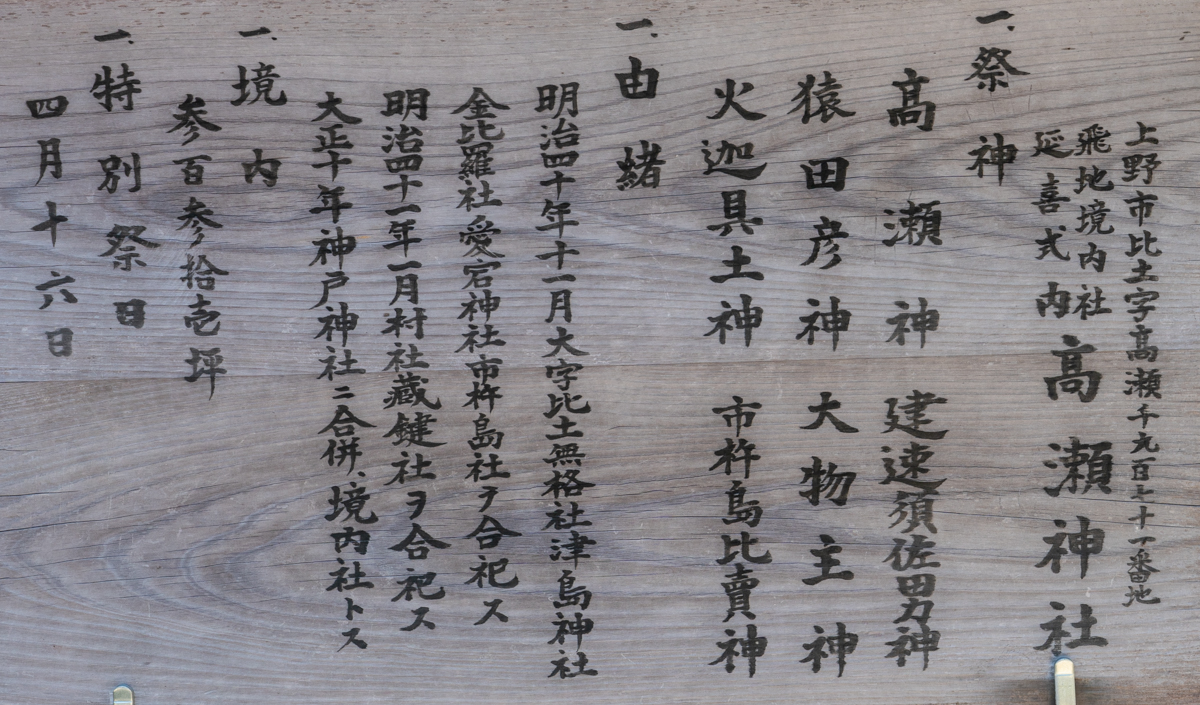 上野市比土字髙瀬千九百七十一番地
飛地境内社
延喜式内 髙瀬神社
一、祭神
髙瀬神 建速須佐田男神
猿田彦神 大物主神
火迦具土神 市杵島比賣神
一、由緒
明治四十年十一月大字比土無格社津島神社
金比羅社愛宕神社市杵島社ヲ合祀ス
明治四十一年一月村社蔵鍵社ヲ合祀ス
大正十年神戸神社ニ合併、境内社トス
一、境内
参百参拾壱坪
一、特別祭日
四月十六日